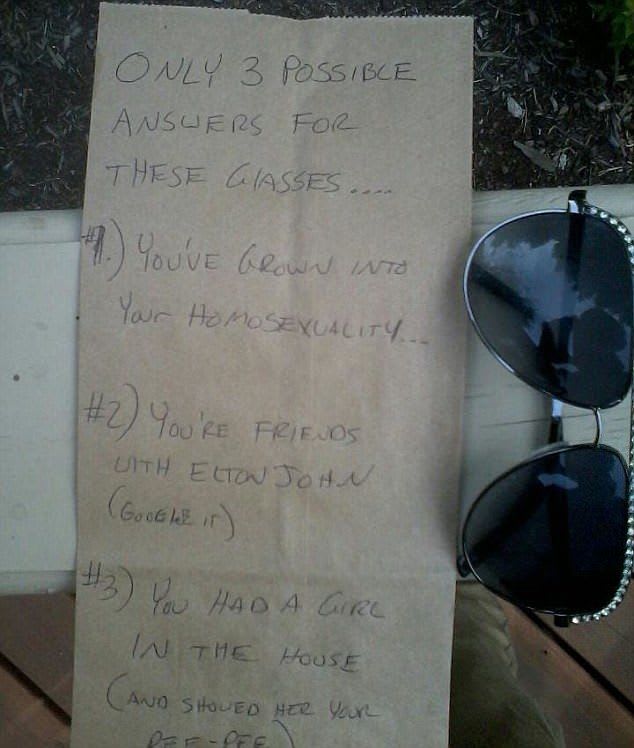 ONLY 3 POSSIBLE
ANSWERS FOR
THESE GLASSES....
#1.) YOU'VE GROWN INTO
YOUR HOMOSEXUALITY...
#2) YOU'RE FRIENDS
WITH ELTON JOHN
(GOOGLE IT)
#3) YOU HAD A GIRL
IN THE HOUSE
(AND SHOWED HER YOUR
PEE-PEE)